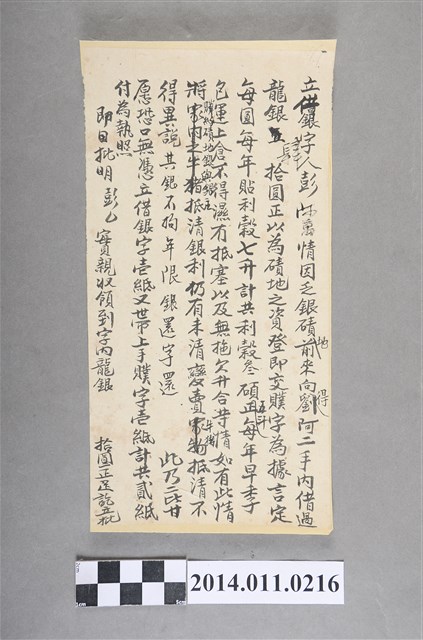 立借銀字人彭 情因乏銀磧地前來向劉得阿二手內借過
龍銀五員拾圓正以為磧地之資登即交贌字為據言定
每圓每年貼利穀七斗計共利穀叁碩正五斗每年早季
包運上倉不得濕有抵塞以及無拖欠升合等情如有此情
將家內之牛豬抵清銀利仍有未清變賣家物抵清不
得異說其銀不拘年限銀還字還 此乃二比甘
愿恐口無憑立借銀字壹紙又帶上手贌字壹紙計共貳紙
付為執照
即日批明彭 實親收領到字內龍銀 拾圓正足訖立批
1cm
5cm
2014.011.0216